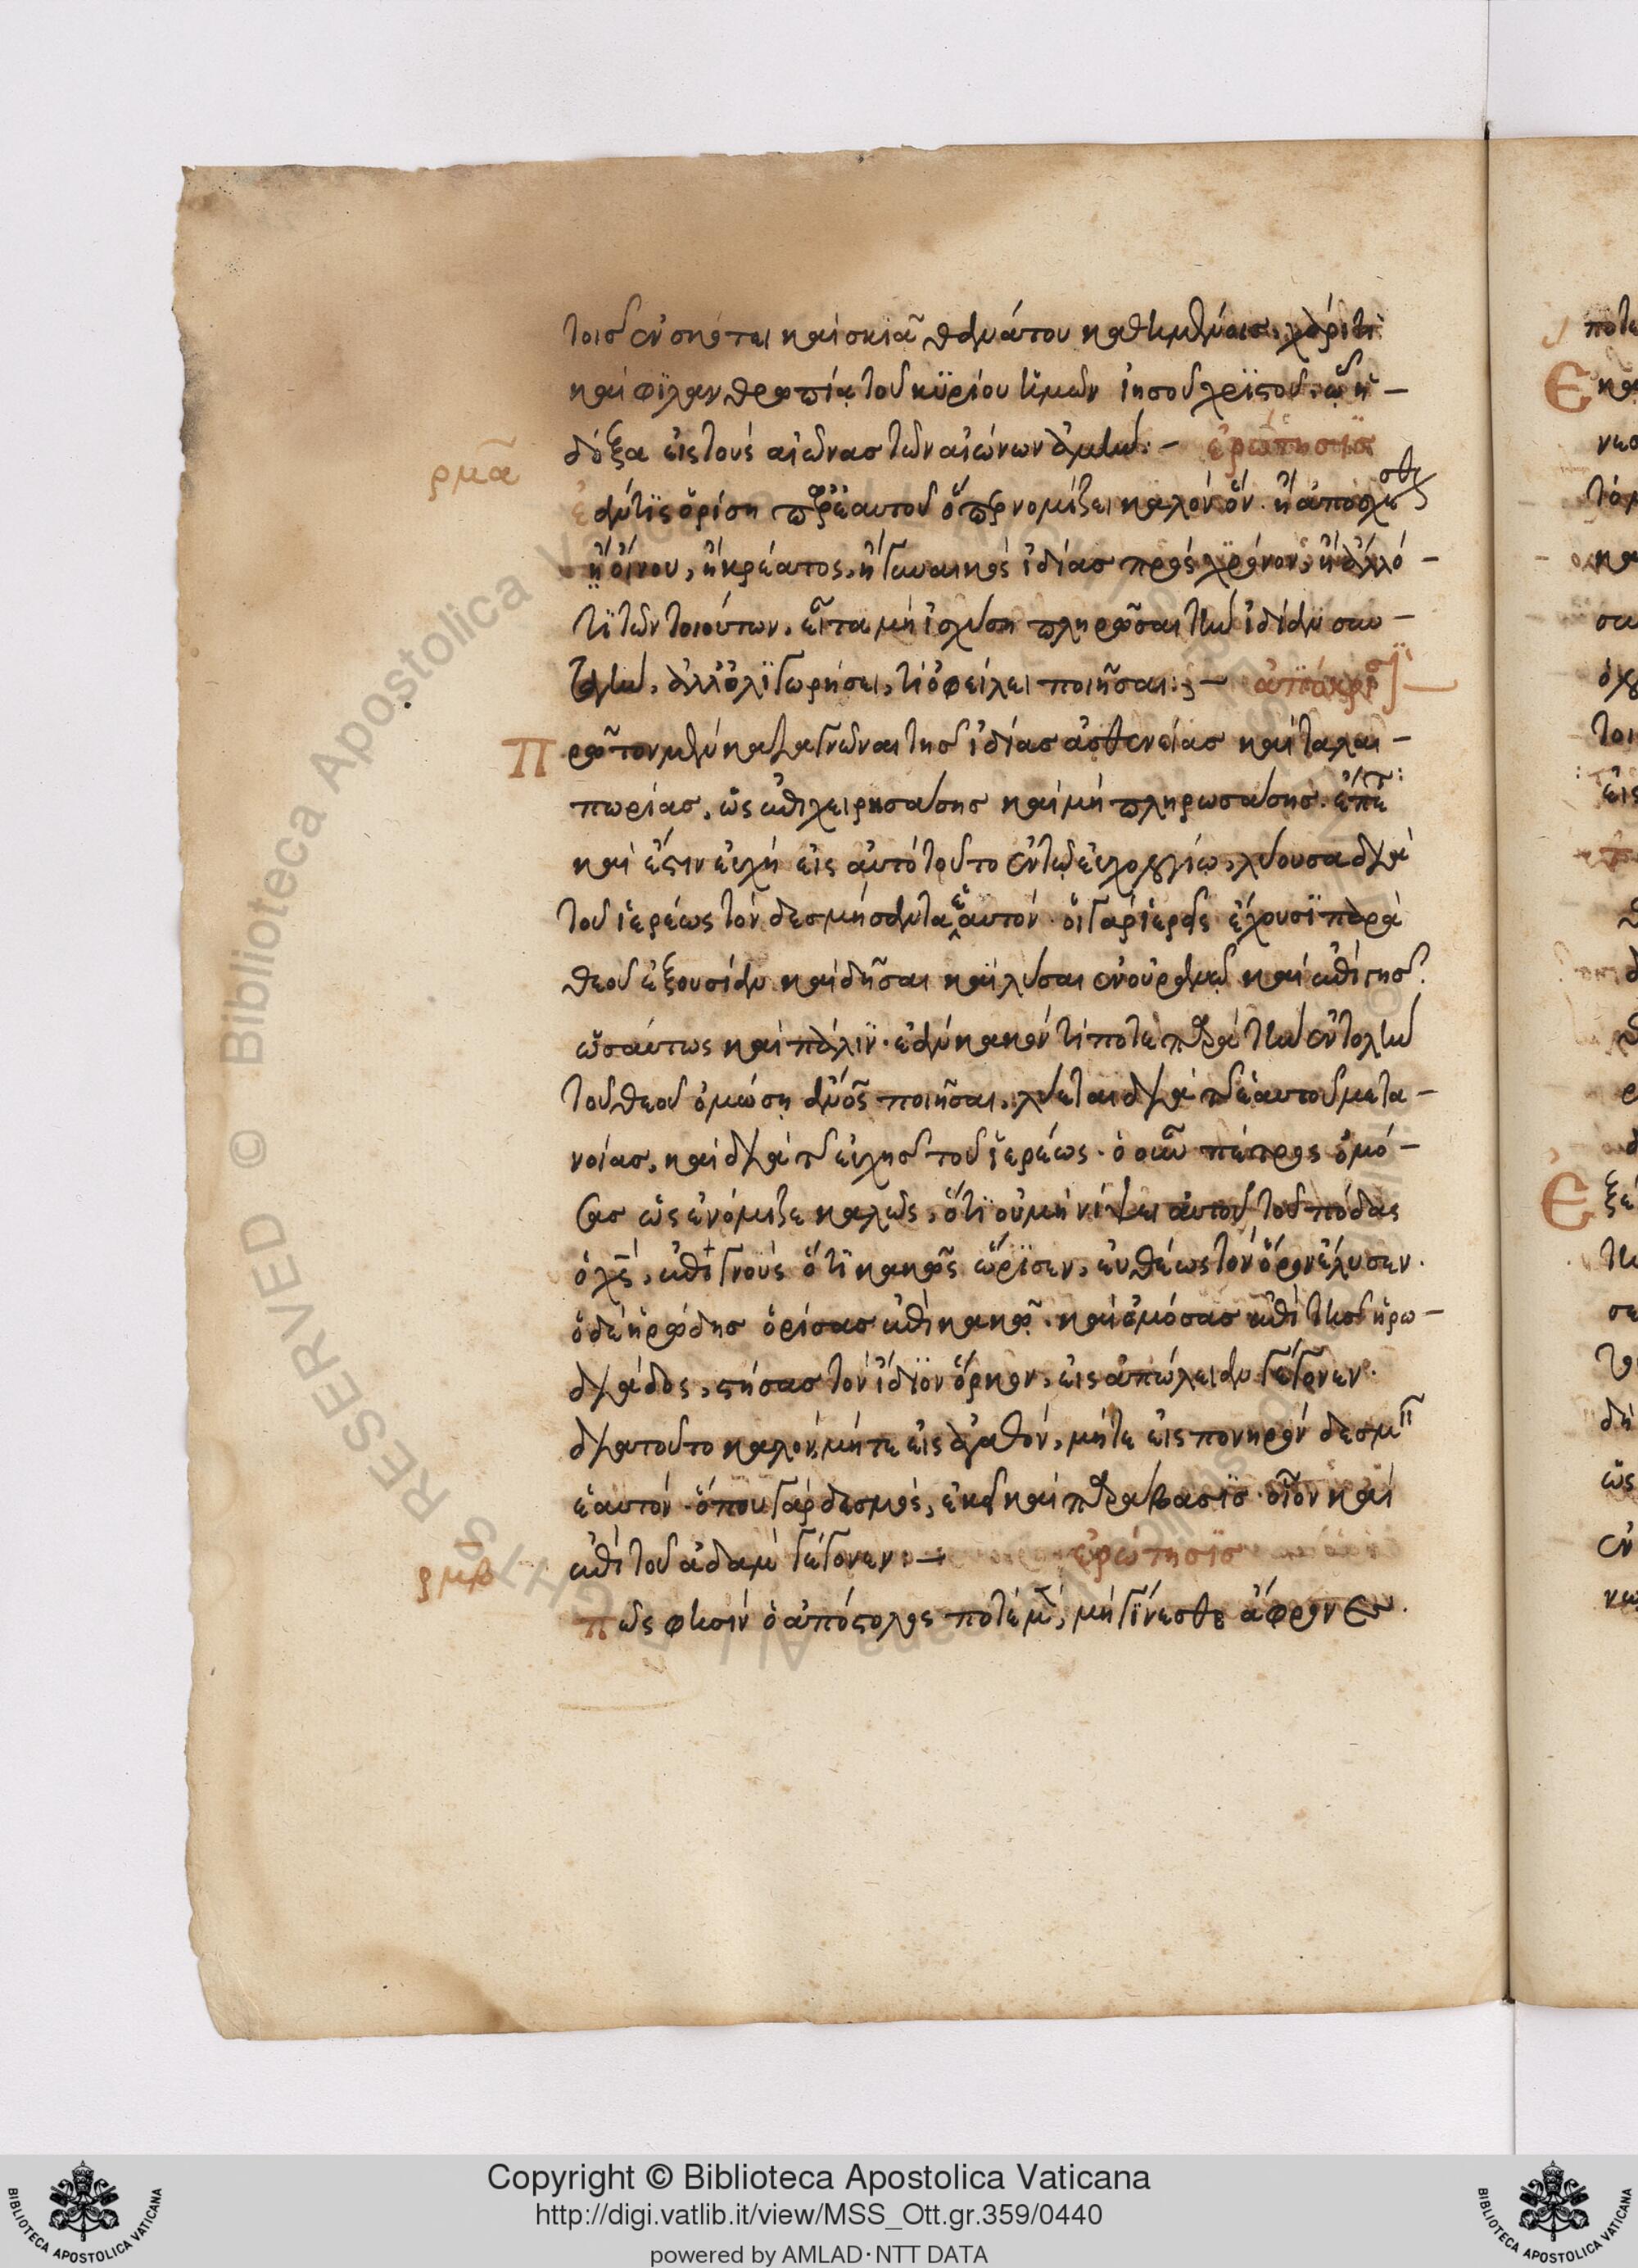 τοῖς ἐν σκότει καὶ σκιᾷ θανάτου καθημένοις, χάριτι
καὶ φϊλανθρωπίᾳ τοῦ κϋρίου ἡμῶν ἰησοῦ χρϊστοῦ. ὧ ἡ –
δόξα εἰς τοὺς αἰῶνας τῶν αἰώνων ἀμήν: – ἐρώτησϊς
ρμα
ἐάν τϊς ὁρίση ἑαυτοῦ ὅπερ νομίζει καλόν ὄν. ἢ ἀποσχέσθαι
ἢ οἴνου, ἢ κρέατος, ἢ γυναικὸς ἰδίας πρὸς χρόνον, ἢ ἄλλό –
τϊ τῶν τοιούτων. εἶτα μὴ ἰσχύση πληρῶσαι τὴν ἰδίαν συν –
ταγὴν, ἀλλ' ὀλϊγωρήσει, τί ὀφείλει ποιῆσαι; – ἀπόκρισϊς
Πρῶτον μὲν καταγνῶναι τῆς ἰδίας ἀσθενείας καὶ ταλαι –
πωρίας, ὡς ἐπιχειρησάσης καὶ μὴ πληρωσάσης. ἔπειτα
καὶ ἔστιν εὐχὴ εἰς αὐτὸ τοῦτο ἐν τῶ εὐχολογίω, λύουσα διὰ
τοῦ ἱερέως τὸν δεσμήσαντα ἑαυτόν. οἱ γὰρ ἱερεῖς ἔχουσϊ παρὰ
θεοῦ ἐξουσίαν καὶ δῆσαι καὶ λῦσαι ἐν οὐρανῶ καὶ ἐπὶ γῆς.
ὡσαύτως καὶ πάλϊν. ἐὰν κακόν τί ποτε παρὰ τὴν ἐντολὴν
τοῦ θεοῦ ὀμώση ποιῆσαι, λύεται διὰ τῆς ἑαυτοῦ μετα –
νοίας, καὶ διὰ τῆς εὐχῆς τοῦ ἱερέως. ὁ οὖν πέτρος ὀμό –
σας ὡς ἐνόμιζε καλῶς, ὅτϊ οὐ μὴ νίψει αὐτοῦ τοὺς πόδας
ὁ χς, ἐπιγνοὺς ὅτϊ κακῶς ὥρϊσεν, εὐθέως τὸν ὅρον ἔλυσεν.
ὁ δὲ ἡρώδης ὁρίσας ἐπὶ κακῶ. καὶ ὀμόσας ἐπὶ τῆς ἡρω –
διάδος, στήσας τὸν ἴδϊον ὅρκον, εἰς ἀπώλειαν γέγονεν.
διὰ τοῦτο καλόν, μήτε εἰς ἀγαθόν, μήτε εἰς πονηρόν δεσμῆ
ἑαυτόν. ὅπου γὰρ δεσμὸς, ἐκεῖ καὶ παράβασϊς. οἷον καὶ
ἐπὶ τοῦ ἀδαμ γέγονεν: – ἐρώτησϊς
ρμβ
πῶς φησὶν ὁ ἀπόστολος ποτὲ μὲν, μὴ γϊνεσθε ἄφρονες.
ποτε
Ε
Ε